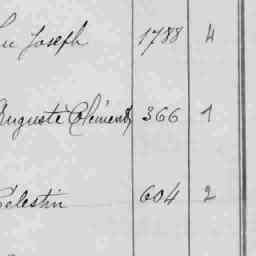 Joseph 1788 4
Auguste Clément 366 1
Célestin 604 2